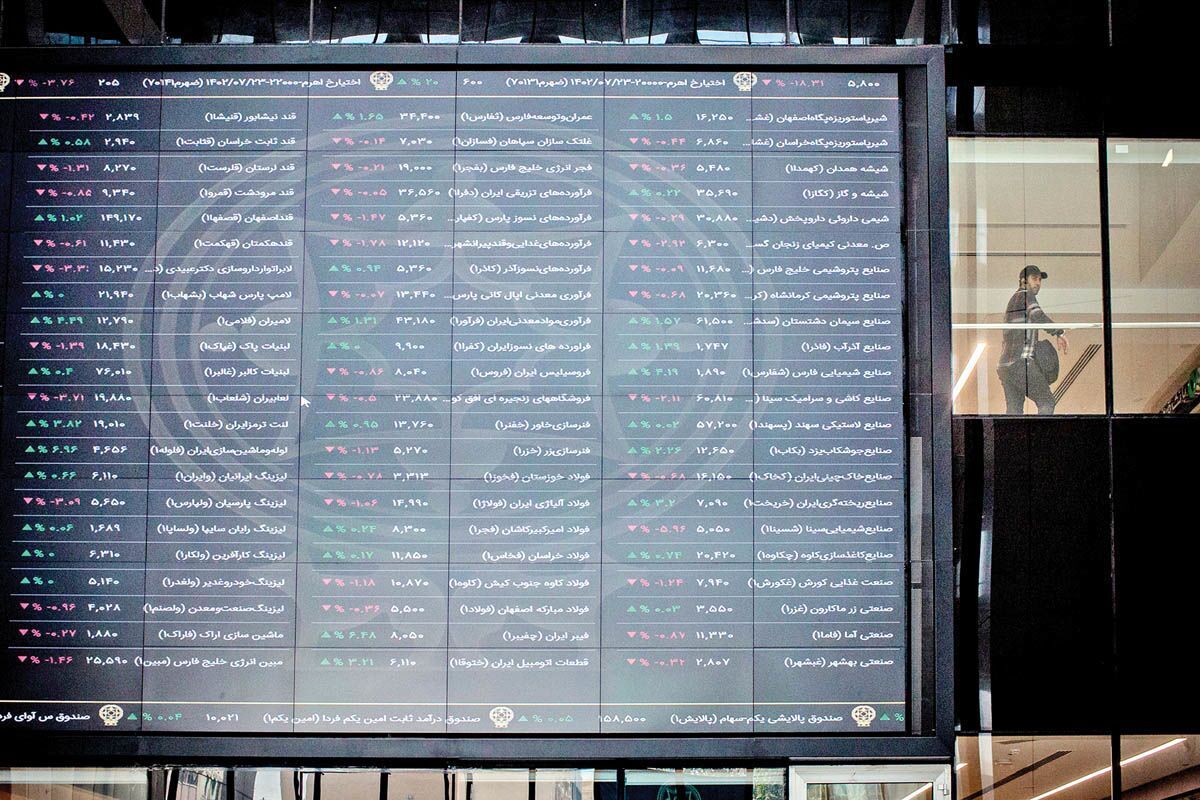 ۵,۸۰۰ ▼ % -۱۸.۳۱ اختیارخ اهرم-۲۰۰۰۰-۱۴۰۲/۰۷/۲۳ (ضهرم۷۰۱۳) ۶۰۰ ▲ % ۲۰ اختیارخ اهرم-۲۲۰۰۰-۱۴۰۲/۰۷/۲۳ (ضهرم۷۰۱۴) ۲۰۵ ▼ % -۳.۷۶
شیرپاستوریزه‌پگاه‌اصفهان (غش... ۱۶,۲۵۰ ▲ % ۱.۵ عمران‌وتوسعه‌فارس (ثفارس۱) ۳۴,۴۰۰ ▲ % ۱.۶۵ قند نیشابور (قنیشا۱) ۲,۸۳۹ ▼ % -۰.۴۲
شیرپاستوریزه‌پگاه‌خراسان (غشا... ۶,۸۶۰ ▼ % -۰.۴۴ غلتک سازان سپاهان (فسازان۱) ۷,۰۳۰ ▼ % -۰.۱۴ قند ثابت خراسان (قثابت۱) ۲,۹۴۰ ▲ % ۰.۵۸
شیشه همدان (کهمدا۱) ۵,۴۸۰ ▼ % -۰.۳۶ فجر انرژی خلیج فارس (بفجر۱) ۱۹,۰۰۰ ▼ % -۰.۲۱ قند لرستان (قلرست۱) ۸,۲۷۰ ▼ % -۱.۳۱
شیشه و گاز (کگاز۱) ۳۵,۶۹۰ ▲ % ۰.۲۲ فرآورده‌های تزریقی ایران (دفرا۱) ۳۶,۵۶۰ ▼ % -۰.۰۵ قند مرودشت (قمرو۱) ۹,۳۴۰ ▼ % -۰.۸۵
شیمی داروئی داروپخش (دشیـ... ۳۰,۸۸۰ ▼ % -۰.۲۹ فرآورده‌های نسوز پارس (کفپار... ۵,۳۶۰ ▼ % -۱.۴۷ قنداصفهان (قصفها۱) ۱۴۹,۱۷۰ ▲ % ۱.۰۲
ص. معدنی کیمیای زنجان گسـ... ۶,۳۰۰ ▼ % -۲.۹۲ فرآورده‌های‌غذایی‌وقندپیرانشهر... ۱۲,۱۲۰ ▼ % -۱.۷۸ قندهکمتان (قهکمت۱) ۱۱,۴۳۰ ▼ % -۰.۶۱
صنایع پتروشیمی خلیج فارس (... ۱۱,۶۸۰ ▼ % -۰.۰۹ فرآورده‌های‌نسوزآذر (کاذر۱) ۵,۳۶۰ ▲ % ۰.۹۴ لابراتوارداروسازی دکترعبیدی (د... ۱۵,۲۳۰ ▼ % -۳.۳
صنایع پتروشیمی کرمانشاه (کر... ۲۰,۳۶۰ ▼ % -۰.۶۸ فرآوری معدنی اپال کانی پارس... ۱۳,۴۴۰ ▼ % -۰.۰۷ لامپ پارس شهاب (بشهاب۱) ۲۱,۹۴۰ ▲ % ۰
صنایع سیمان دشتستان (سدشـ... ۶۱,۵۰۰ ▲ % ۱.۵۷ فرآوری‌موادمعدنی‌ایران (فرآور۱) ۴۳,۱۸۰ ▲ % ۱.۳۱ لامیران (فلامی۱) ۱۲,۷۹۰ ▲ % ۴.۴۹
صنایع آذرآب (فاذر۱) ۱,۷۴۷ ▲ % ۱.۳۹ فراورده های نسوزایران (کفرا۱) ۹,۹۰۰ ▲ % ۰ لبنیات پاک (غپاک۱) ۱۸,۴۳۰ ▼ % -۱.۳۹
صنایع شیمیایی فارس (شفارس۱) ۱,۸۹۰ ▲ % ۴.۱۹ فروسیلیس ایران (فروس۱) ۸,۰۴۰ ▼ % -۰.۸۶ لبنیات کالبر (غالبر۱) ۷۶,۰۱۰ ▲ % ۰.۴
صنایع کاشی و سرامیک سینا (... ۶۰,۸۱۰ ▼ % -۲.۱۱ فروشگاههای زنجیره ای افق کو... ۲۳,۸۸۰ ▼ % -۰.۵ لعابیران (شلعاب۱) ۱۹,۸۸۰ ▼ % -۳.۷۱
صنایع لاستیکی سهند (پسهند۱) ۵۷,۲۰۰ ▲ % ۰.۰۲ فنرسازی‌خاور (خفنر۱) ۱۳,۷۶۰ ▲ % ۰.۹۵ لنت ترمزایران (خلنت۱) ۱۹,۰۱۰ ▲ % ۳.۸۲
صنایع‌جوشکاب‌یزد (بکاب۱) ۱۲,۶۵۰ ▲ % ۲.۲۶ فنرسازی‌زر (خزر۱) ۵,۲۷۰ ▼ % -۱.۱۳ لوله‌وماشین‌سازی‌ایران (فلوله۱) ۴,۶۵۶ ▲ % ۶.۹۶
صنایع‌خاک‌چینی‌ایران (کخاک۱) ۱۶,۱۵۰ ▼ % -۰.۶۸ فولاد خوزستان (فخوز۱) ۳,۳۱۳ ▼ % -۰.۷۸ لیزینگ ایرانیان (وایران۱) ۶,۱۱۰ ▲ % ۰.۶۶
صنایع‌ریخته‌گری‌ایران (خریخت۱) ۷,۰۹۰ ▲ % ۳.۲ فولاد آلیاژی ایران (فولاژ۱) ۱۴,۹۹۰ ▼ % -۱.۰۶ لیزینگ پارسیان (ولپارس۱) ۵,۶۵۰ ▼ % -۳.۰۹
صنایع‌شیمیایی‌سینا (شسینا۱) ۵,۰۵۰ ▼ % -۵.۹۶ فولاد امیرکبیرکاشان (فجر۱) ۸,۳۰۰ ▲ % ۰.۲۴ لیزینگ رایان‌ سایپا (ولساپا۱) ۱,۶۸۹ ▲ % ۰.۰۶
صنایع‌کاغذسازی‌کاوه (چکاوه۱) ۲۰,۴۲۰ ▲ % ۰.۷۴ فولاد خراسان (فخاس۱) ۱۱,۸۵۰ ▲ % ۰.۱۷ لیزینگ کارآفرین (ولکار۱) ۶,۳۱۰ ▲ % ۰
صنعت غذایی کورش (غکورش۱) ۷,۹۴۰ ▼ % -۱.۲۴ فولاد کاوه جنوب کیش (کاوه۱) ۱۰,۸۷۰ ▼ % -۱.۱۸ لیزینگ‌خودروغدیر (ولغدر۱) ۵,۱۴۰ ▲ % ۰
صنعتی زر ماکارون (غزر۱) ۳,۵۵۰ ▲ % ۰.۰۳ فولاد مبارکه اصفهان (فولاد۱) ۵,۵۰۰ ▼ % -۰.۳۶ لیزینگ‌صنعت‌ومعدن (ولصنم۱) ۴,۰۲۸ ▼ % -۰.۹۶
صنعتی آما (فاما۱) ۱۱,۳۳۰ ▼ % -۰.۸۷ فیبر ایران (چفیبر۱) ۸,۰۵۰ ▲ % ۶.۴۸ ماشین سازی اراک (فاراک۱) ۱,۸۸۰ ▼ % -۰.۲۷
صنعتی بهشهر (غبشهر۱) ۲,۸۰۷ ▼ % -۰.۳۲ قطعات اتومبیل ایران (ختوقا۱) ۶,۱۱۰ ▲ % ۳.۲۱ مبین انرژی خلیج فارس (مبین۱) ۲۵,۵۹۰ ▼ % -۱.۴۶
▲ % صندوق پالایشی یکم-سهام (پالایش۱) ۱۵۸,۵۰۰ ▲ % ۰.۰۵ صندوق درآمد ثابت امین یکم فردا (امین یکم۱) ۱۰,۰۲۱ ▲ % ۰.۰۴ صندوق س آوای فر